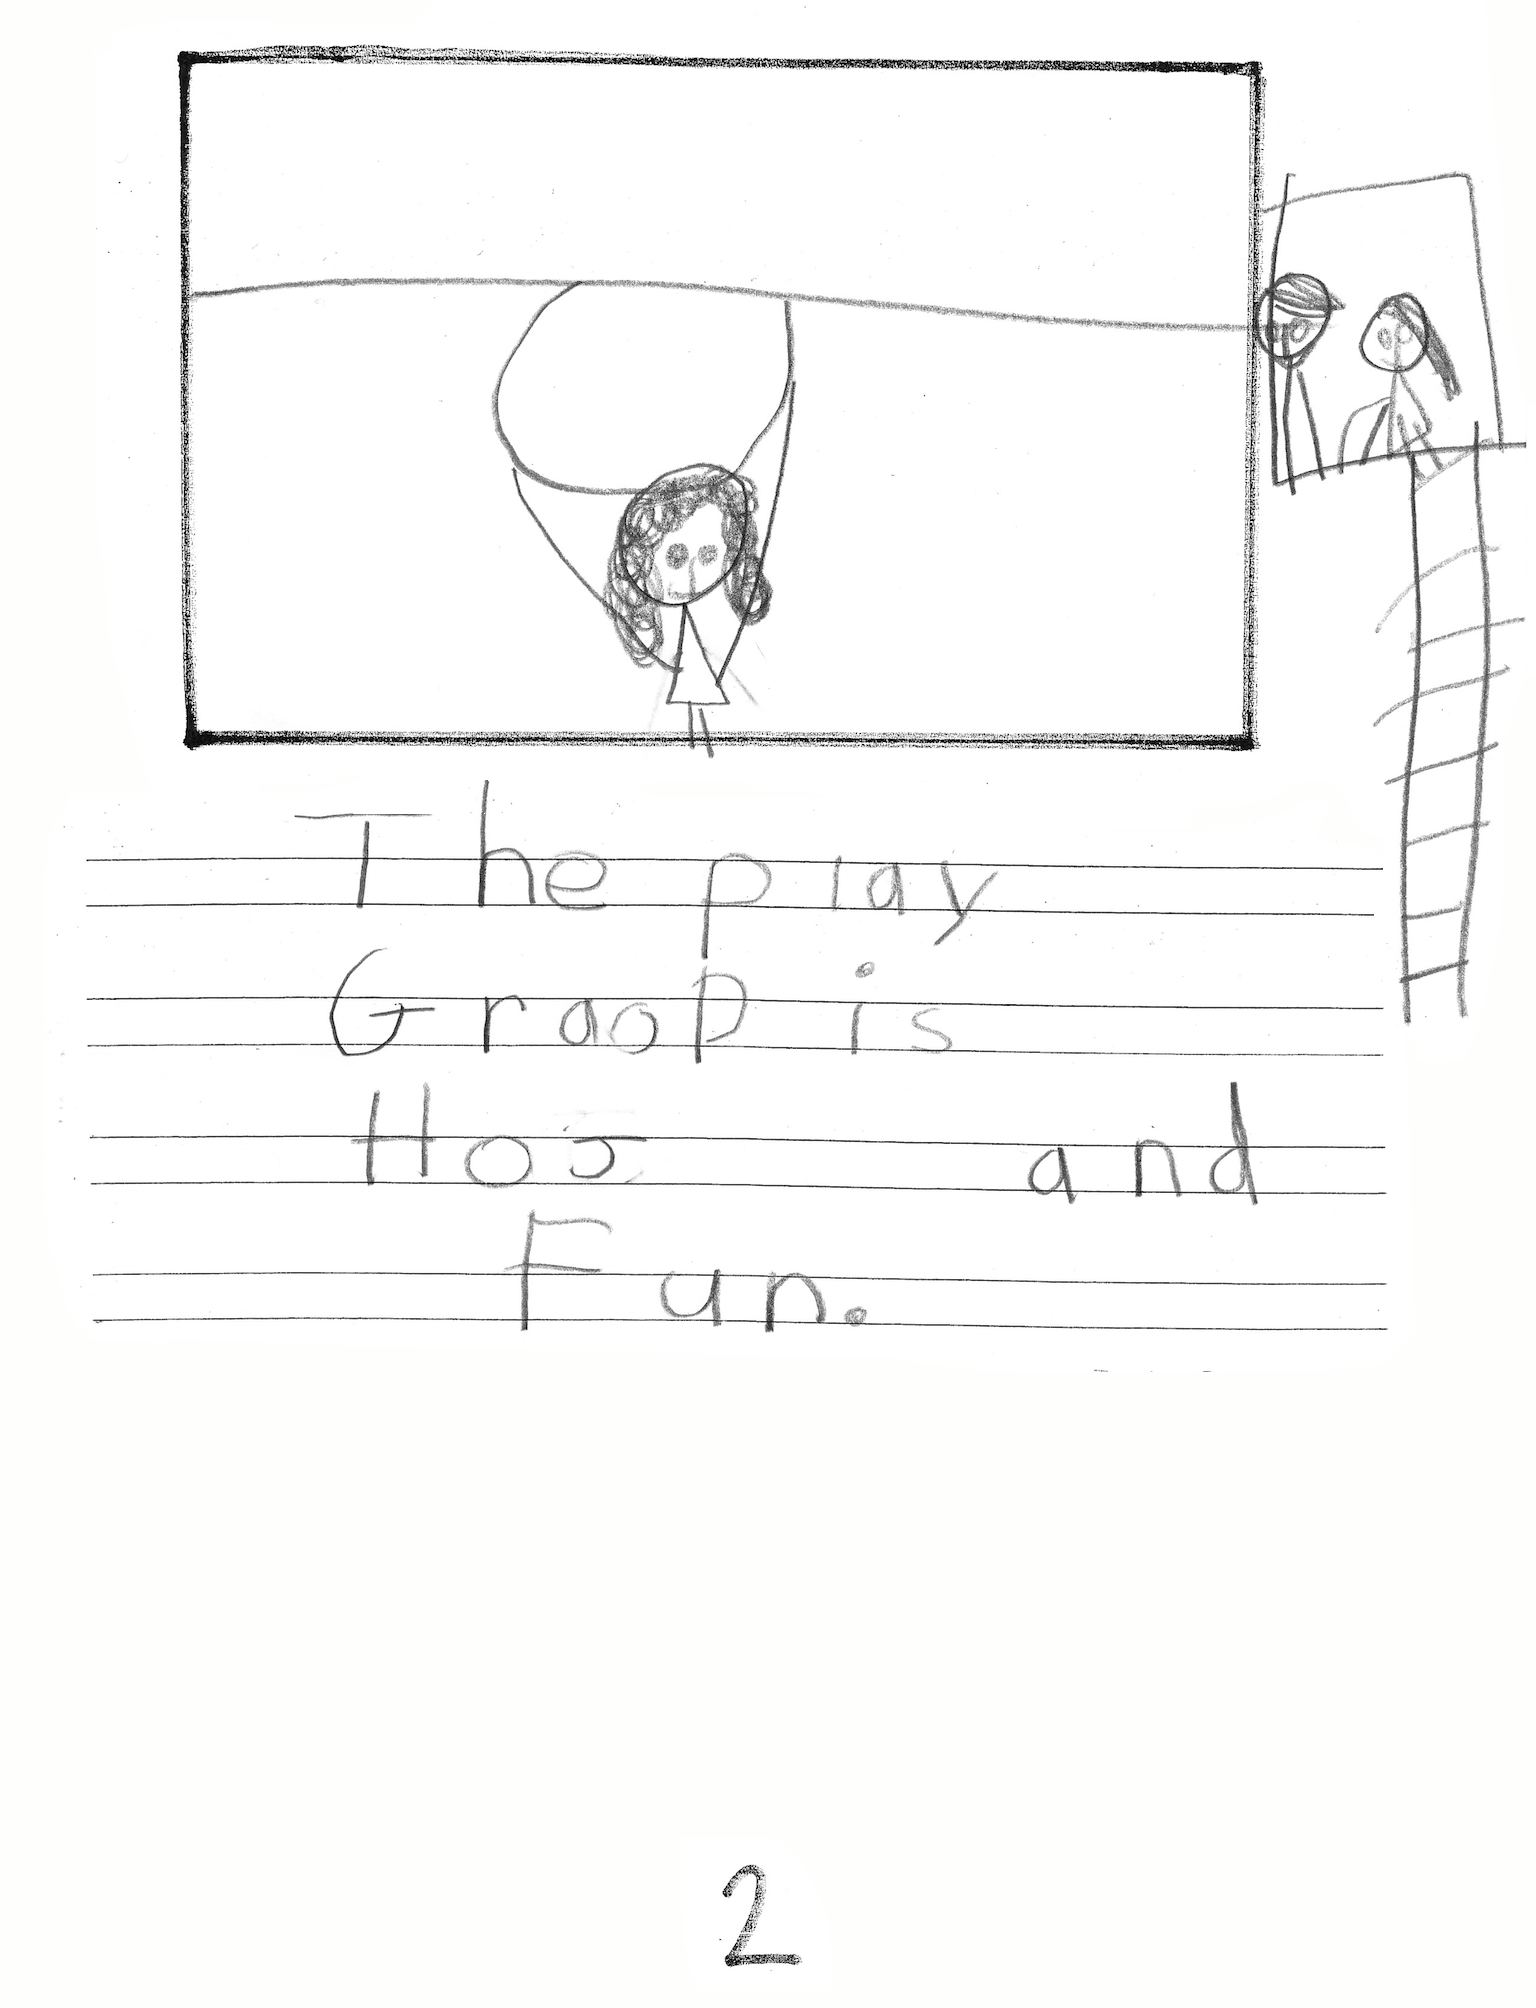 The play
Graop is
Hoj and
Fun.
2